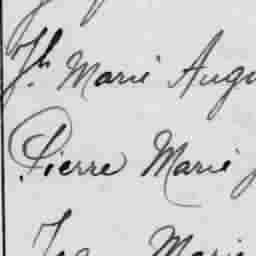 Jh. Marie Augu
Pierre Marie
Marie